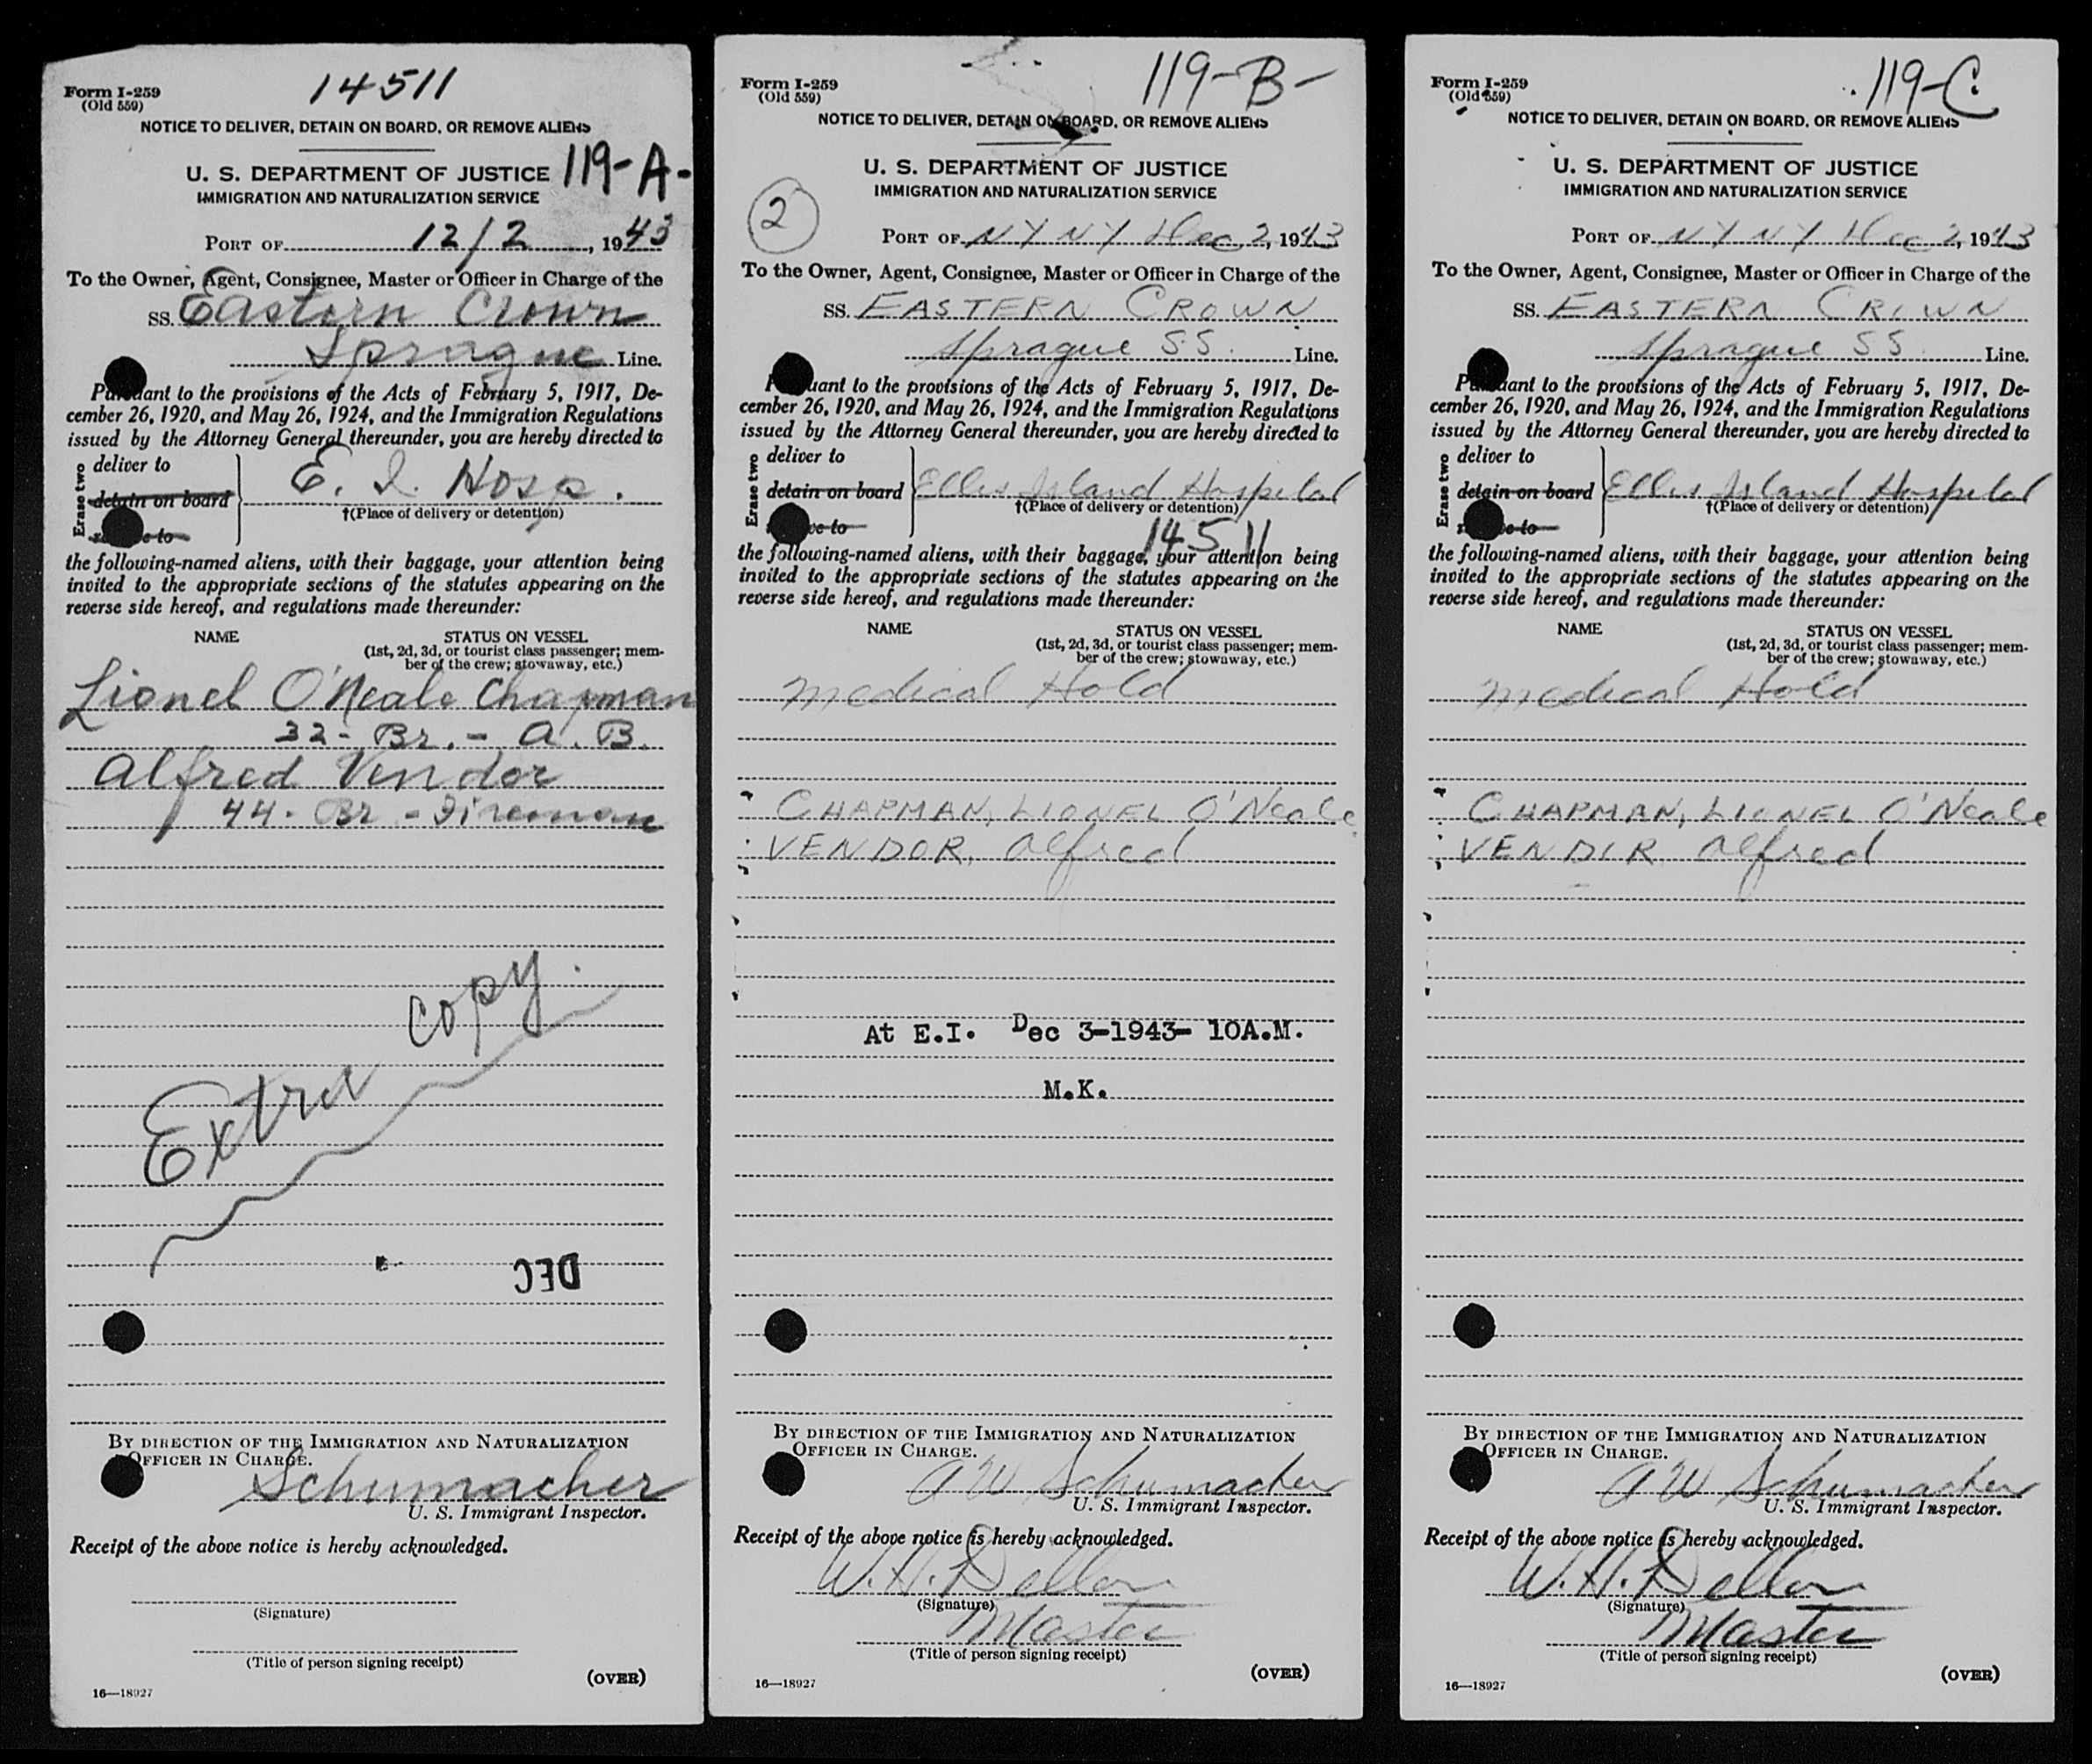 Form I-259
(Old 559)
14511
NOTICE TO DELIVER, DETAIN ON BOARD, OR REMOVE ALIENS
119-A-
U. S. DEPARTMENT OF JUSTICE
IMMIGRATION AND NATURALIZATION SERVICE
PORT OF 12/2, 1943
To the Owner, Agent, Consignee, Master or Officer in Charge of the
SS. Eastern Crown
Sprague Line.
Pursuant to the provisions of the Acts of February 5, 1917, De-
cember 26, 1920, and May 26, 1924, and the Immigration Regulations
issued by the Attorney General thereunder, you are hereby directed to
Erase two
deliver to
detain on board
E. I. Hosp.
†(Place of delivery or detention)
the following-named aliens, with their baggage, your attention being
invited to the appropriate sections of the statutes appearing on the
reverse side hereof, and regulations made thereunder:
NAME STATUS ON VESSEL
(1st, 2d, 3d, or tourist class passenger; mem-
ber of the crew; stowaway, etc.)
Lionel O'Neale Chapman
32- Br. - A. B.
Alfred Vendor
44- Br - Fireman
Extra copy.
DEC
BY DIRECTION OF THE IMMIGRATION AND NATURALIZATION
OFFICER IN CHARGE.
Schumacher
U. S. Immigrant Inspector.
Receipt of the above notice is hereby acknowledged.
(Signature)
(Title of person signing receipt)
(OVER)
16—18927
Form I-259
(Old 559)
119-B-
NOTICE TO DELIVER, DETAIN ON BOARD, OR REMOVE ALIENS
U. S. DEPARTMENT OF JUSTICE
IMMIGRATION AND NATURALIZATION SERVICE
2
PORT OF NY NY Dec 2, 1943
To the Owner, Agent, Consignee, Master or Officer in Charge of the
SS. EASTERN CROWN
Sprague SS. Line.
Pursuant to the provisions of the Acts of February 5, 1917, De-
cember 26, 1920, and May 26, 1924, and the Immigration Regulations
issued by the Attorney General thereunder, you are hereby directed to
Erase two
deliver to
detain on board
Ellis Island Hospital
†(Place of delivery or detention)
14511
the following-named aliens, with their baggage, your attention being
invited to the appropriate sections of the statutes appearing on the
reverse side hereof, and regulations made thereunder:
NAME STATUS ON VESSEL
(1st, 2d, 3d, or tourist class passenger; mem-
ber of the crew; stowaway, etc.)
Medical Hold
CHAPMAN, LIONEL O'Neale
VENDOR, Alfred
At E.I. Dec 3-1943- 10A.M.
M.K.
BY DIRECTION OF THE IMMIGRATION AND NATURALIZATION
OFFICER IN CHARGE.
A W Schumacher
U. S. Immigrant Inspector.
Receipt of the above notice is hereby acknowledged.
W. H.
(Signature)
Master
(Title of person signing receipt)
(OVER)
16—18927
Form I-259
(Old 559)
119-C
NOTICE TO DELIVER, DETAIN ON BOARD, OR REMOVE ALIENS
U. S. DEPARTMENT OF JUSTICE
IMMIGRATION AND NATURALIZATION SERVICE
PORT OF NY NY Dec 2, 1943
To the Owner, Agent, Consignee, Master or Officer in Charge of the
SS. EASTERN CROWN
Sprague SS Line.
Pursuant to the provisions of the Acts of February 5, 1917, De-
cember 26, 1920, and May 26, 1924, and the Immigration Regulations
issued by the Attorney General thereunder, you are hereby directed to
Erase two
deliver to
detain on board
Ellis Island Hospital
†(Place of delivery or detention)
the following-named aliens, with their baggage, your attention being
invited to the appropriate sections of the statutes appearing on the
reverse side hereof, and regulations made thereunder:
NAME STATUS ON VESSEL
(1st, 2d, 3d, or tourist class passenger; mem-
ber of the crew; stowaway, etc.)
Medical Hold
CHAPMAN, LIONEL O'Neale
VENDOR Alfred
BY DIRECTION OF THE IMMIGRATION AND NATURALIZATION
OFFICER IN CHARGE.
A W Schumacher
U. S. Immigrant Inspector.
Receipt of the above notice is hereby acknowledged.
W. H.
(Signature)
Master
(Title of person signing receipt)
(OVER)
16—18927